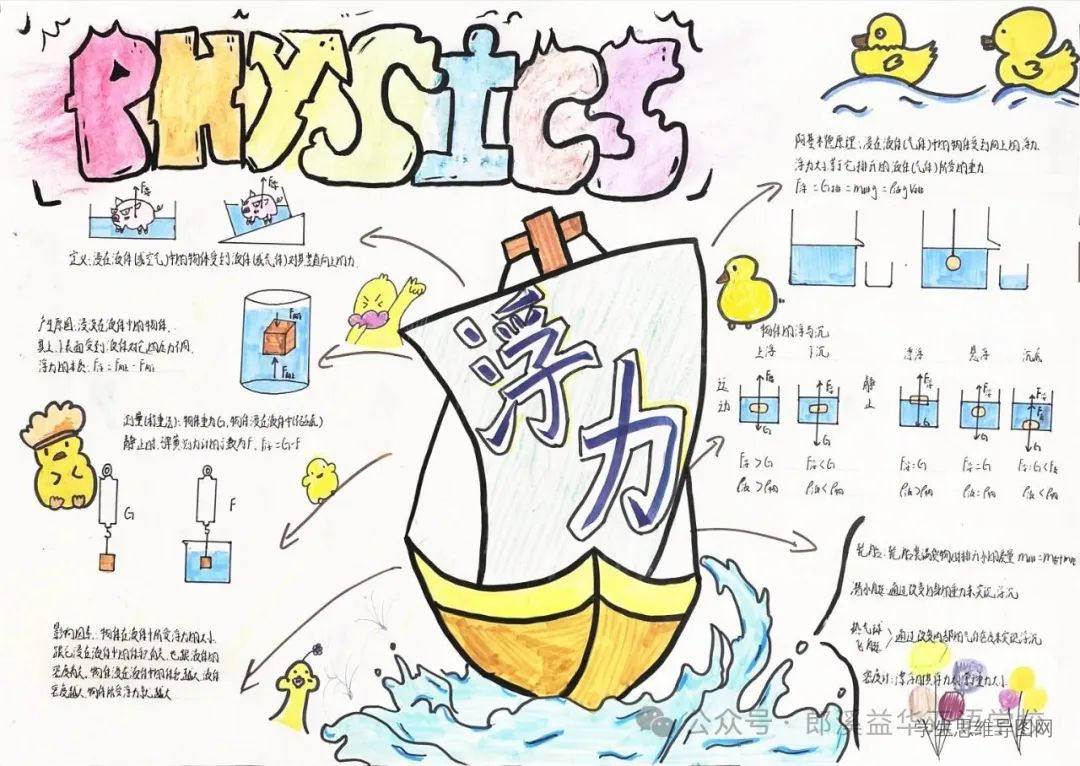 PHYSICS
浮力
F浮
F浮
定义:浸在液体(或空气)中的物体受到液体(或气体)对其竖直向上的力.
产生原因:浸没在液体中的物体,
其上下表面受到液体对它的压力不同.
浮力的本质:F浮=F向上-F向下
F向下
F向上
测量(称重法):物体重力G,物体浸在液体中
静止时,弹簧测力计的示数为F,F浮=G-F
G
F
影响因素:物体在液体中所受浮力的大小,
跟它浸在液体中的体积有关,也跟液体的
密度有关,物体浸在液体中的体积越大,液体
密度越大,物体所受浮力就越大
阿基米德原理:浸在液体(气体)中的物体受到向上的浮力
浮力大小等于它排开的液体(气体)所受的重力
F浮=G排=m排g=ρ液gV排
物体的浮与沉
上浮 下沉 漂浮 悬浮 沉底
运动
静止
F浮 F浮 F浮 F浮 F浮
G G G G G
F浮>G F浮<G F浮=G F浮=G
ρ液>ρ物 ρ液<ρ物 ρ液>ρ物 ρ液=ρ物 ρ液<ρ物
轮船:
潜水艇:通过改变自身的重力来实现浮沉
热气球
飞艇
通过改变内部的气体密度来实现浮沉
密度计:
公众号·郎溪益华双语学校
学生思维导图网